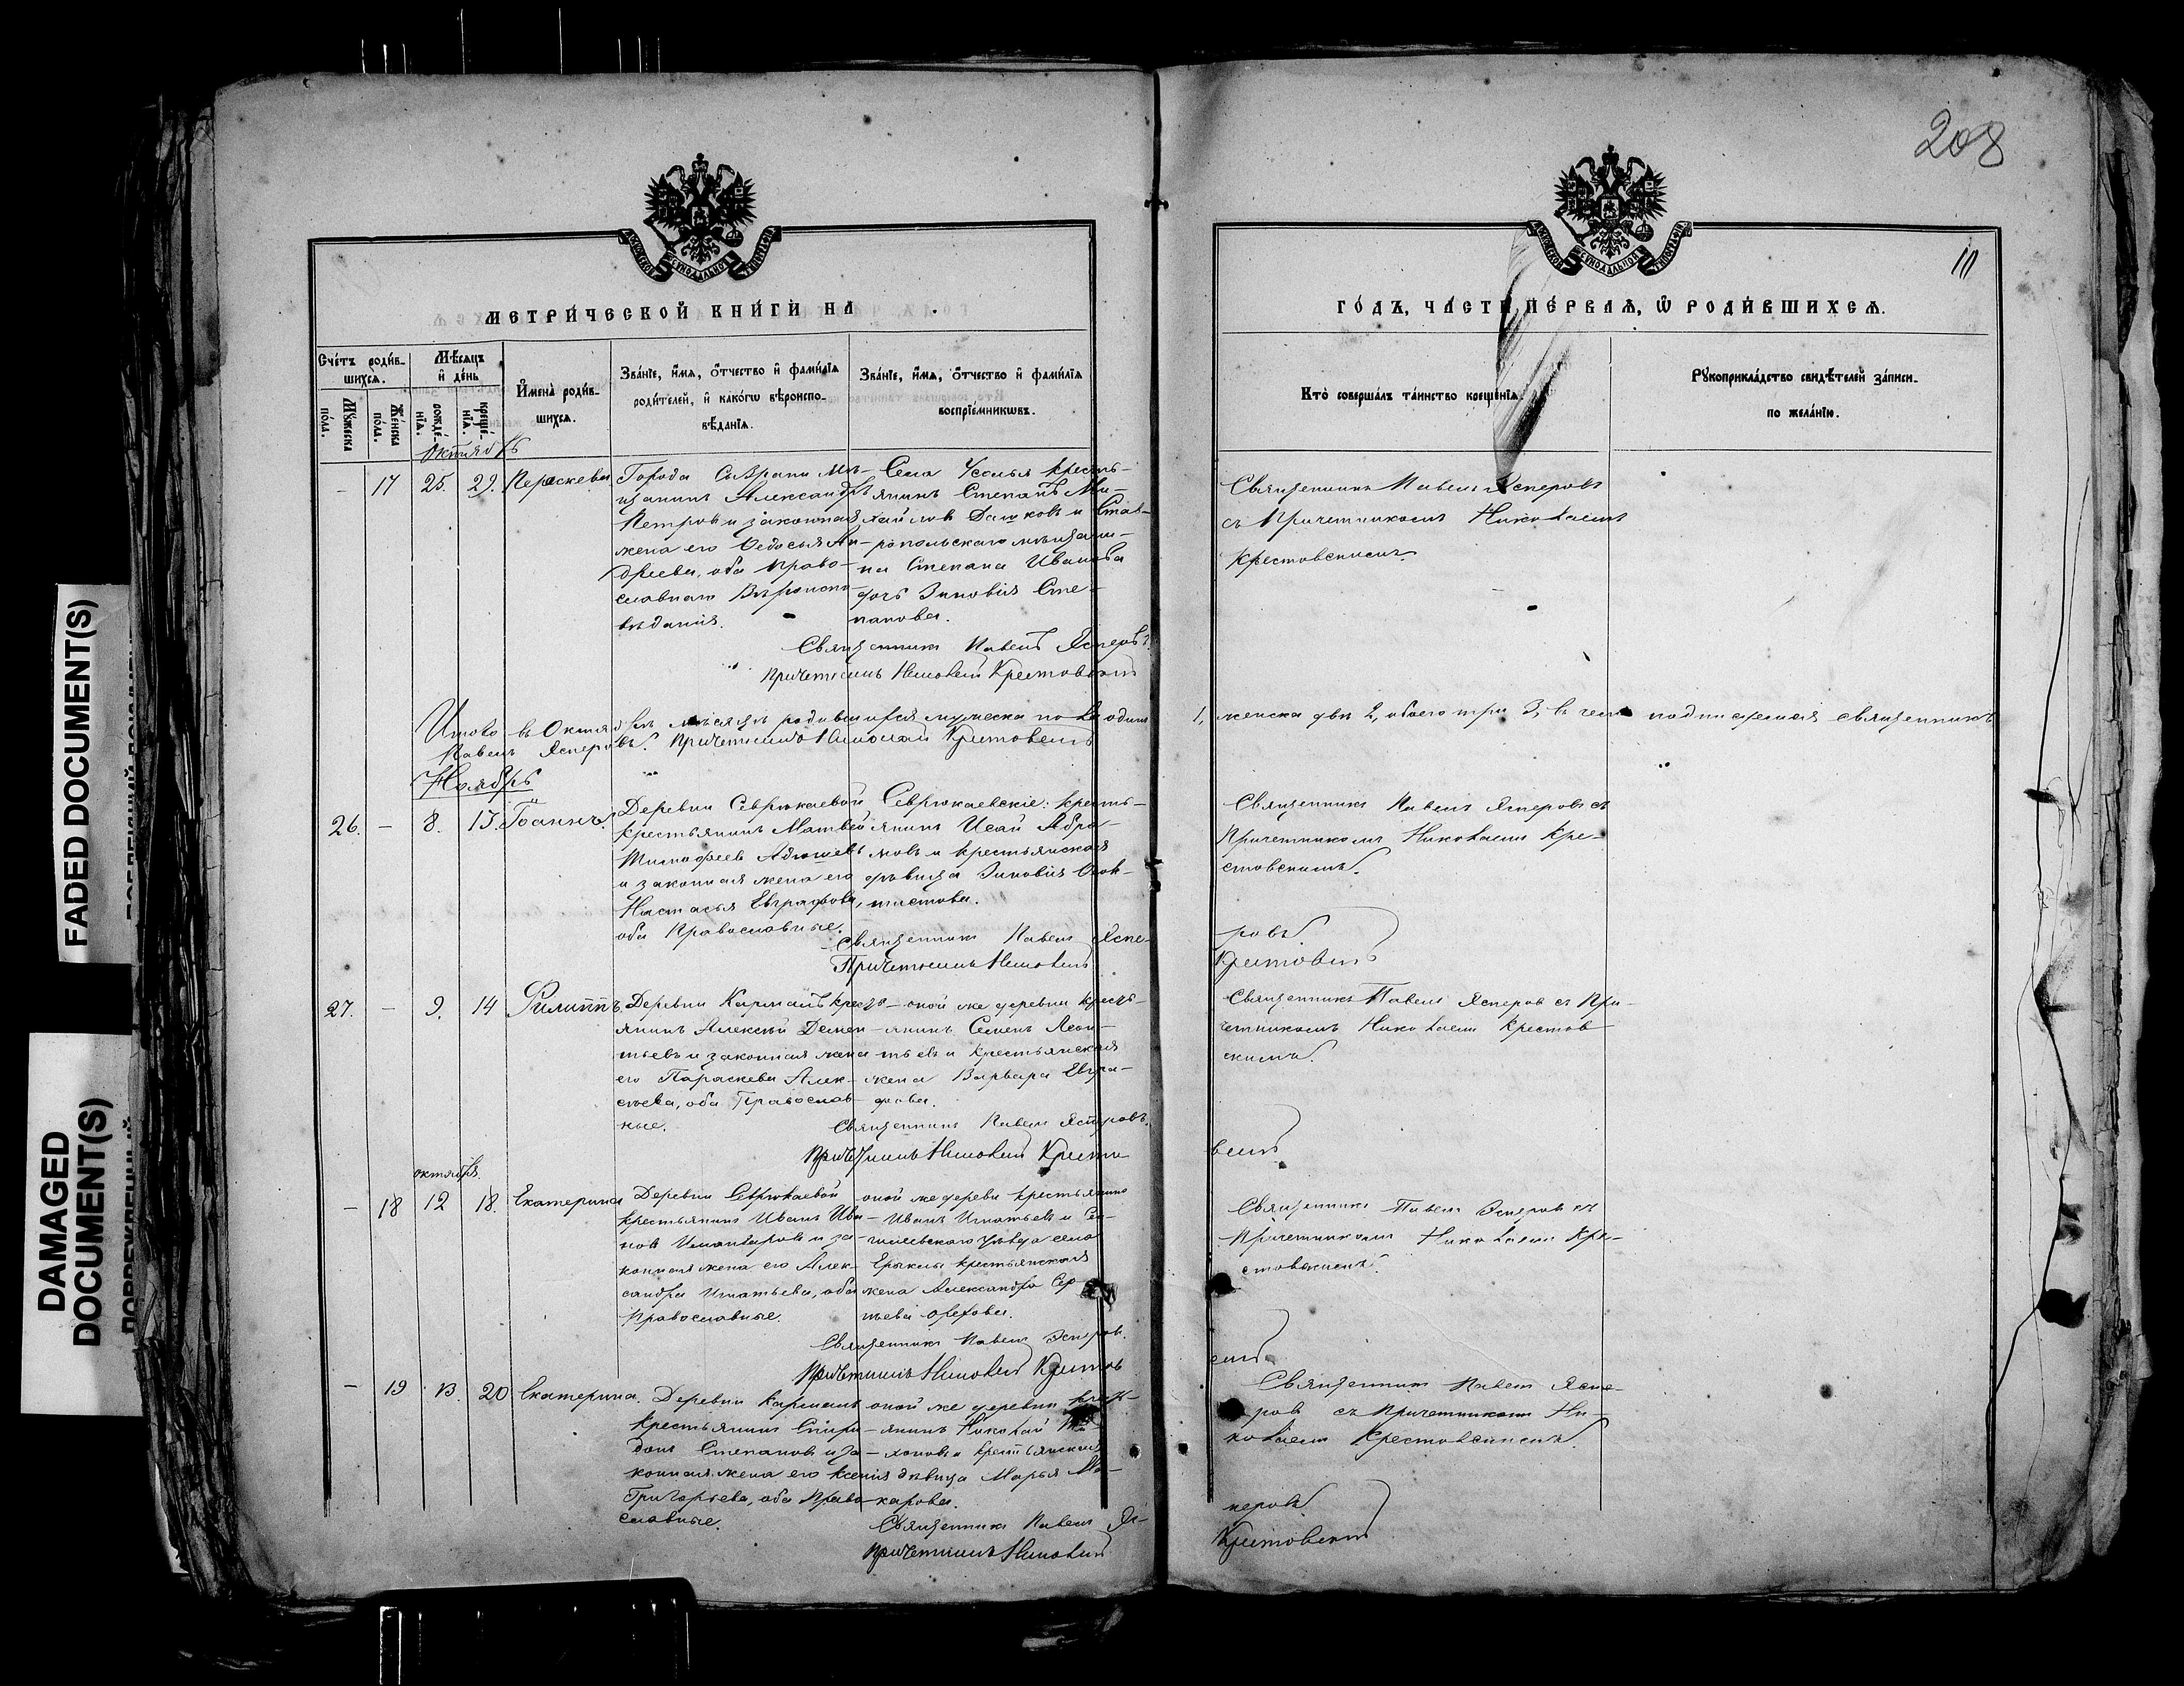 208
10
МЕТРИ́ЧЕСКОЙ КНИ́ГИ НА
ГО́ДЪ, ЧА́СТИ ПЕ́РВАЯ, Ѿ РОДИ́ВШИХСЯ.
Сче́тъ роди́в-
шихся.
Мѣ́сяцъ
и де́нь
Му́жеска по́ла.
Же́нска по́ла.
рожде́нїя.
креще́нїя.
И҆мена̀ роди́в-
шихся.
Зва́нїе, и҆́мя, о҆́тчество и҆ фами́лїя
роди́телей, и҆ како́гѡ вѣроиспо-
вѣ́данїя.
Зва́нїе, и҆́мя, о҆́тчество и҆ фами́лїя
воспрїе́мникѡвъ.
Кто̀ соверша́лъ та́инство креще́нїя.
Рꙋкоприкла́дство свидѣ́телей за́писи
по жела́нїю.
Октябрь
– 17 25. 29. Параскева
Города Сызрани мѣ-
щанинъ Александръ
Петровъ и законная
жена его Ѳедосья Ан-
дреева, оба право-
славнаго вѣроиспо-
вѣданія.
Села Усолья кресть-
янинъ Степанъ Ми-
хайловъ Дашковъ и Став-
ропольскаго мѣщани-
на Степана Иванова
дочь Зиновія Сте-
панова.
Священникъ Павелъ Ясперовъ
съ Причетникомъ Николаемъ
Крестовскимъ
Священникъ Павелъ Ясперовъ.
Причетникъ Николай Крестовскій
Итого въ Октябрѣ мѣсяцѣ родившихся мужеска пола одинъ 1, женска два 2, обоего три 3, въ чемъ подписуемся священникъ
Павелъ Ясперовъ. Причетникъ Николай Крестовскій
Ноябрь
26. – 8. 13. Іоаннъ.
Деревни Севрюкаевой
крестьянинъ Матвей
Тимофеевъ Адюшевъ
и законная жена его
Настасья Евграфова,
оба Православные.
Севрюкаевскіе: кресть-
янинъ Исай Абра-
мовъ и крестьянская
дѣвица Зиновія Ѳеок-
тистова.
Священникъ Павелъ Ясперовъ съ
Причетникомъ Николаемъ Кре-
стовскимъ.
Священникъ Павелъ Яспе-
ровъ.
Причетникъ Николай
Крестовскій
27. – 9. 14 Филиппъ
Деревни Кармалъ кресть-
янинъ Алексѣй Демен-
тьевъ и законная жена
его Параскева Алек-
сѣева, оба Православ-
ные.
оной же деревни кресть-
янинъ Семенъ Леон-
тьевъ и крестьянская
жена Варвара Евгра-
фова.
Священникъ Павелъ Ясперовъ съ При-
четникомъ Николаемъ Крестов
скимъ.
Священникъ Павелъ Ясперовъ.
Причетникъ Николай Кресто
вскій
октября.
– 18 12 18. Екатерина
Деревни Севрюкаевой
крестьянинъ Иванъ Ива-
новъ и за-
конная жена его Алек-
сандра Игнатьева, оба
Православные.
оной же деревни крестьянинъ
Иванъ Игнатьевъ и Сен-
гилеевскаго уѣзда села
Ерыклы крестьянская
жена Александра Сер-
гѣева Орехова.
Священникъ Павелъ Эсперовъ съ
Причетникомъ Николаемъ Кре-
стовскимъ.
Священникъ Павелъ Эсперов.
Причетникъ Николай Крестов
скій
– 19 13. 20 Екатерина.
Деревни Кармалъ
крестьянинъ Спири-
донъ Степановъ и за-
конная жена его Ксенія
Григорьева, оба Право-
славные.
оной же деревни крест-
янинъ Николай
и крестьянская
дѣвица Марья Ма-
карова.
Священникъ Павелъ Яспе-
ров съ Причетникомъ Ни-
колаемъ Крестовскимъ.
Священникъ Павелъ Яс-
перовъ
Причетникъ Николай
Крестовскій
FADED DOCUMENT(S)
DAMAGED
DOCUMENT(S)